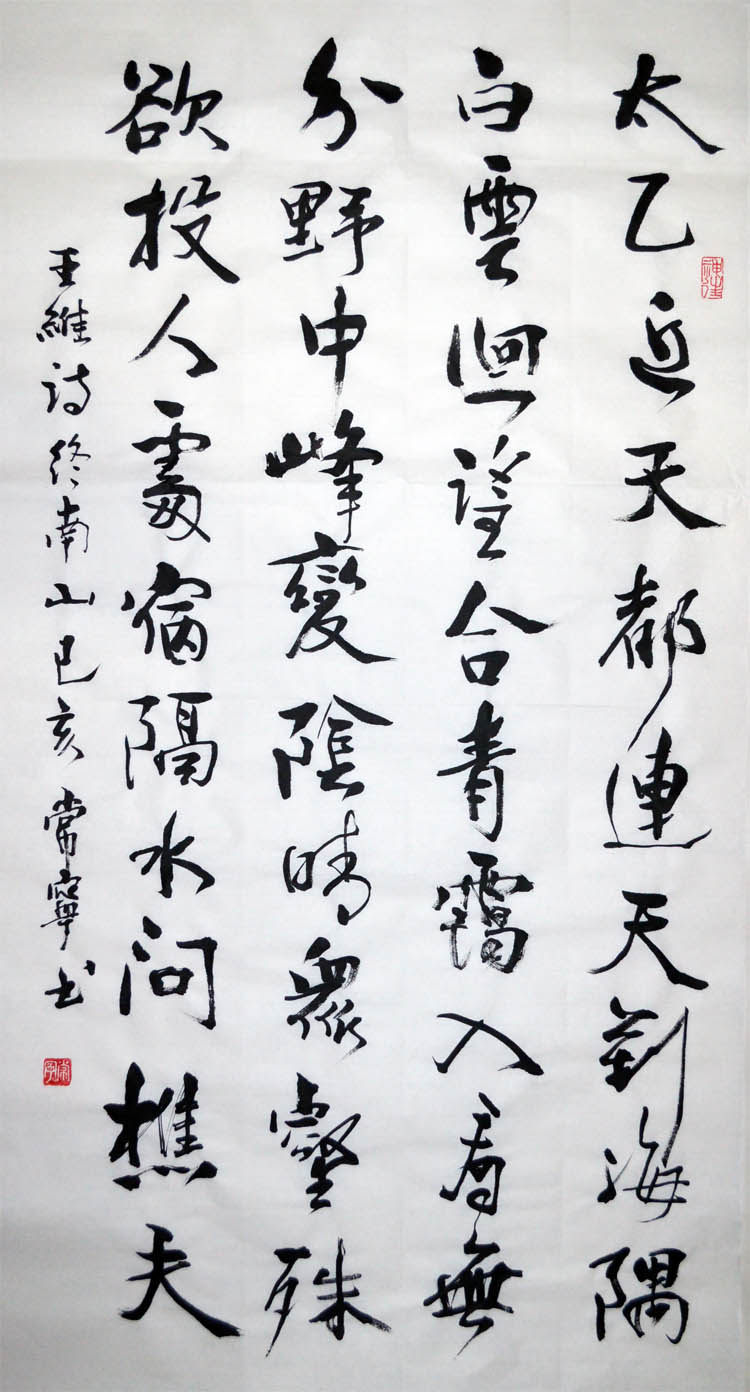 太乙近天都連天到海隅
白雲迴望合青靄入看無
分野中峰變陰晴衆壑殊
欲投人處宿隔水問樵夫
王維詩終南山己亥常寧书